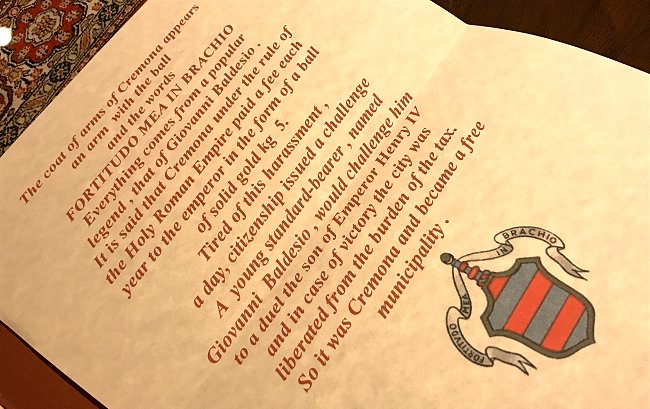 The coat of arms of Cremona appears
an arm with the ball
and the words
FORTITUDO MEA IN BRACHIO
Everything comes from a popular
legend , that of Giovanni Baldesio .
It is said that Cremona under the rule of
the Holy Roman Empire paid a fee each
year to the emperor in the form of a ball
of solid gold kg 5.
Tired of this harassment ,
a day, citizenship issued a challenge
A young standard-bearer , named
Giovanni Baldesio , would challenge him
to a duel the son of Emperor Henry IV
and in case of victory the city was
liberated from the burden of the tax.
So it was Cremona and became a free
municipality .
FORTITVDO MEA IN BRACHIO